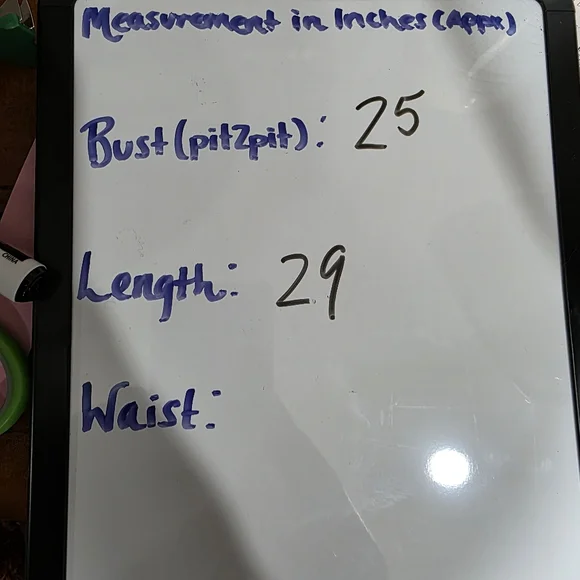 Measurement in Inches (Appx)
Bust (pit2pit): 25
Length: 29
Waist:
CHINA